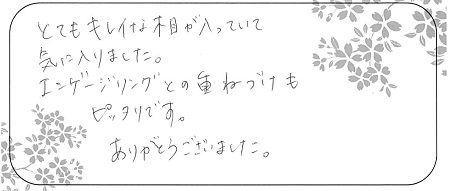 とてもキレイな木目が入っていて
気に入りました。
エンゲージリングとの重ねづけも
ピッタリです。
ありがとうございました。